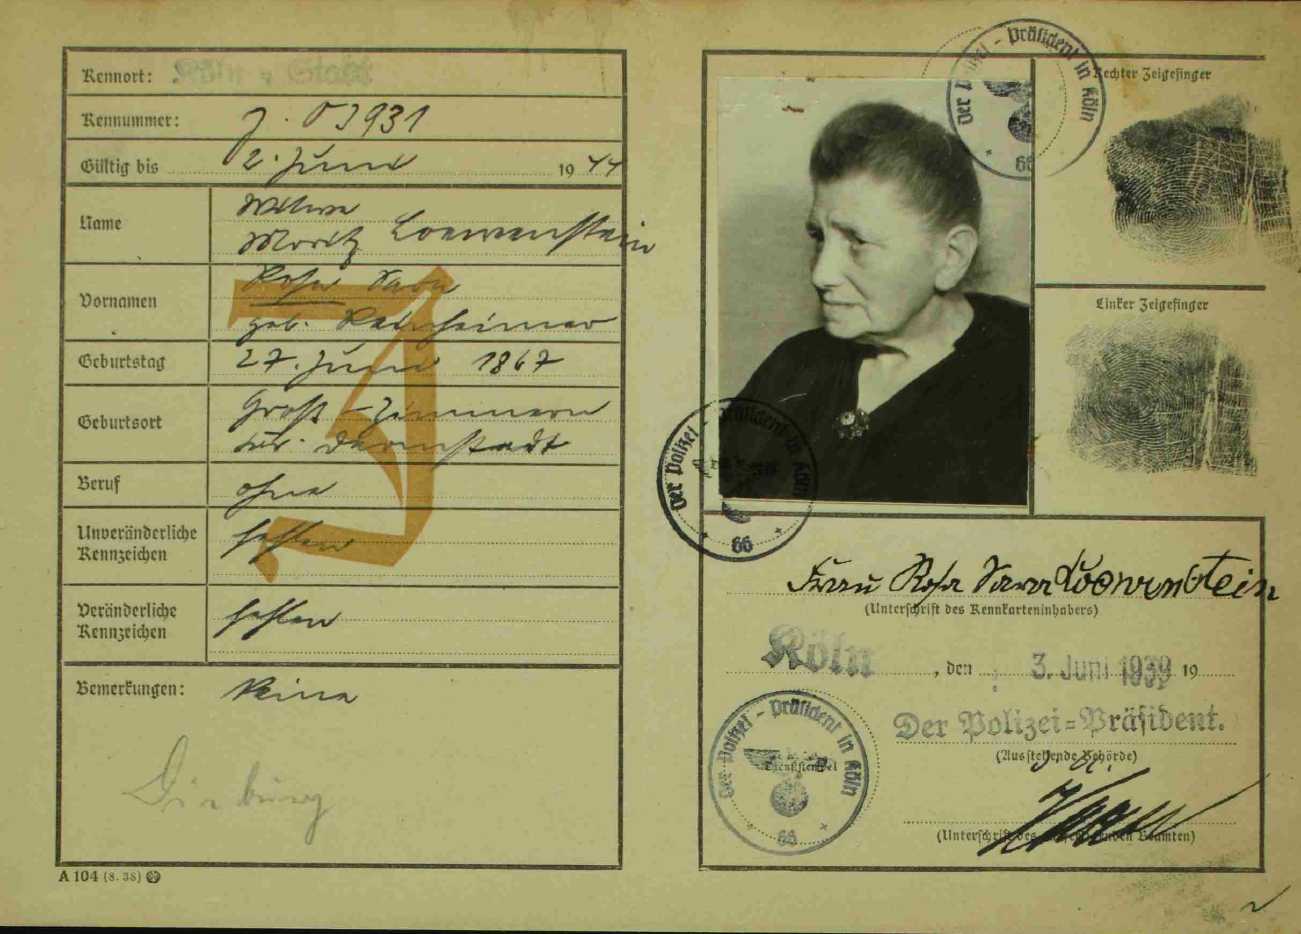 Kennort: Köln - Stadt
Kennummer: J. 03931
Gültig bis 2. Juni 1944
Name Witwe
Moritz Loewenstein
Vornamen Rosa Sara
geb.
Geburtstag 27. Juni 1867
Geburtsort Groß-Zimmern
Darmstadt
Beruf ohne
Unveränderliche
Kennzeichen fehlen
Veränderliche
Kennzeichen fehlen
Bemerkungen: Keine
J
Dieburg
A 104 (8. 38)
Der Polizei - Präsident in Köln
66
Rechter Zeigefinger
Linker Zeigefinger
Der Polizei - Präsident in Köln
66
Frau Rosa Sara Loewenstein
(Unterschrift des Kennkarteninhabers)
Köln, den 3. Juni 1939 19
Der Polizei=Präsident.
(Ausstellende Behörde)
Der Polizei - Präsident in Köln
Dienststempel
66
(Unterschrift des ausfertigenden Beamten)